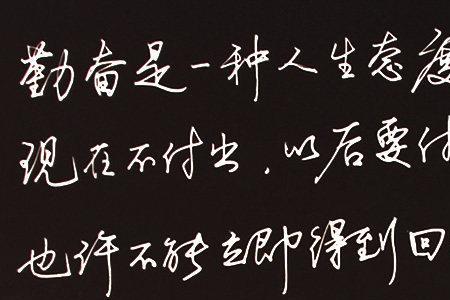 勤奋是一种人生态度
现在不付出,以后要付
也许不能立即得到回